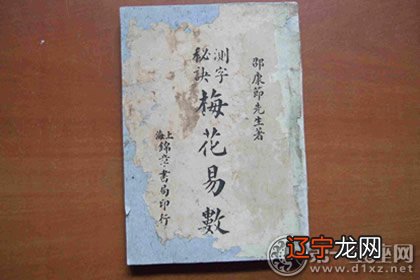 邵康節先生著
測字
秘訣
梅花易數
上海
錦章書局印行
辽宁龙网
www.d1xz.net